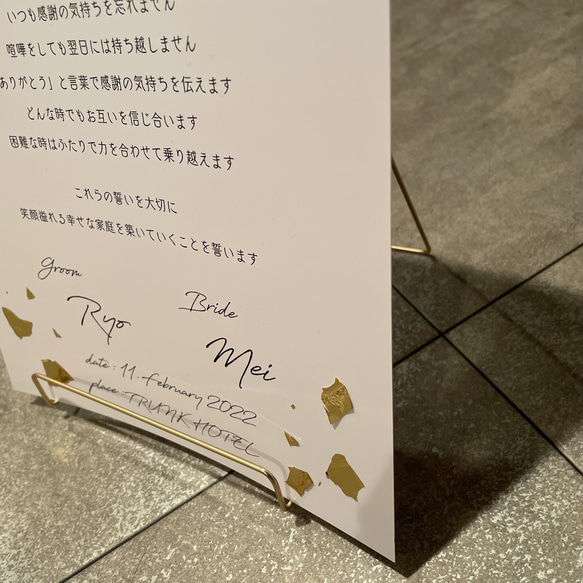 いつも感謝の気持ちを忘れません
喧嘩をしても翌日には持ち越しません
ありがとう」と言葉で感謝の気持ちを伝えます
どんな時でもお互いを信じ合います
困難な時はふたりで力を合わせて乗り越えます
これらの誓いを大切に
笑顔溢れる幸せな家庭を築いていくことを誓います
Groom
Bride
Ryo
Mei
date : 11. February 2022
place : TRUNK HOTEL